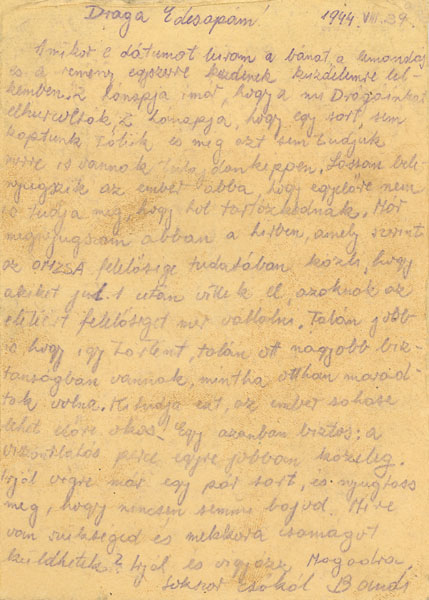 Drága Édesapám! 1944. VIII. 39.
Amikor e dátumot leirom a bánat a lemondás
és a remény egyszerre kezdenek küzdelemre lel-
kemben. 2 hónapja imár, hogy a mi Drágáinkat
elhurcolták, 2 hónapja, hogy egy sort, sem
kaptunk Tőlük és még azt sem tudjuk
merre is vannak Lassan bele-
nyugszik az ember abba, hogy egyelőre nem
is tudja meg, hogy hol tartózkodnak. Már
megnyugszom abban a hírben, amely szerint
az OMZSA felelőssége tudatában közli, hogy
akiket jul. 1 után vittek el, azoknak az
életéért felelőséget mer vállalni. Talán jobb
is hogy igy történt, talán ott nagyobb biz-
tonságban vannak, mintha otthon marad-
tak volna. Ki tudja ezt, az ember sohase
lehet előre okos. Egy azonban biztos: a
viszontlátás perce egyre jobban közeleg.
Irjál végre már egy pár sort, és nyugtass
meg, hogy nincsen semmi bajod. Mire
van szükséged és mekkora csomagot
küldhetek? Irjál és vigyázz Magadra
sokszor csókol Bandi